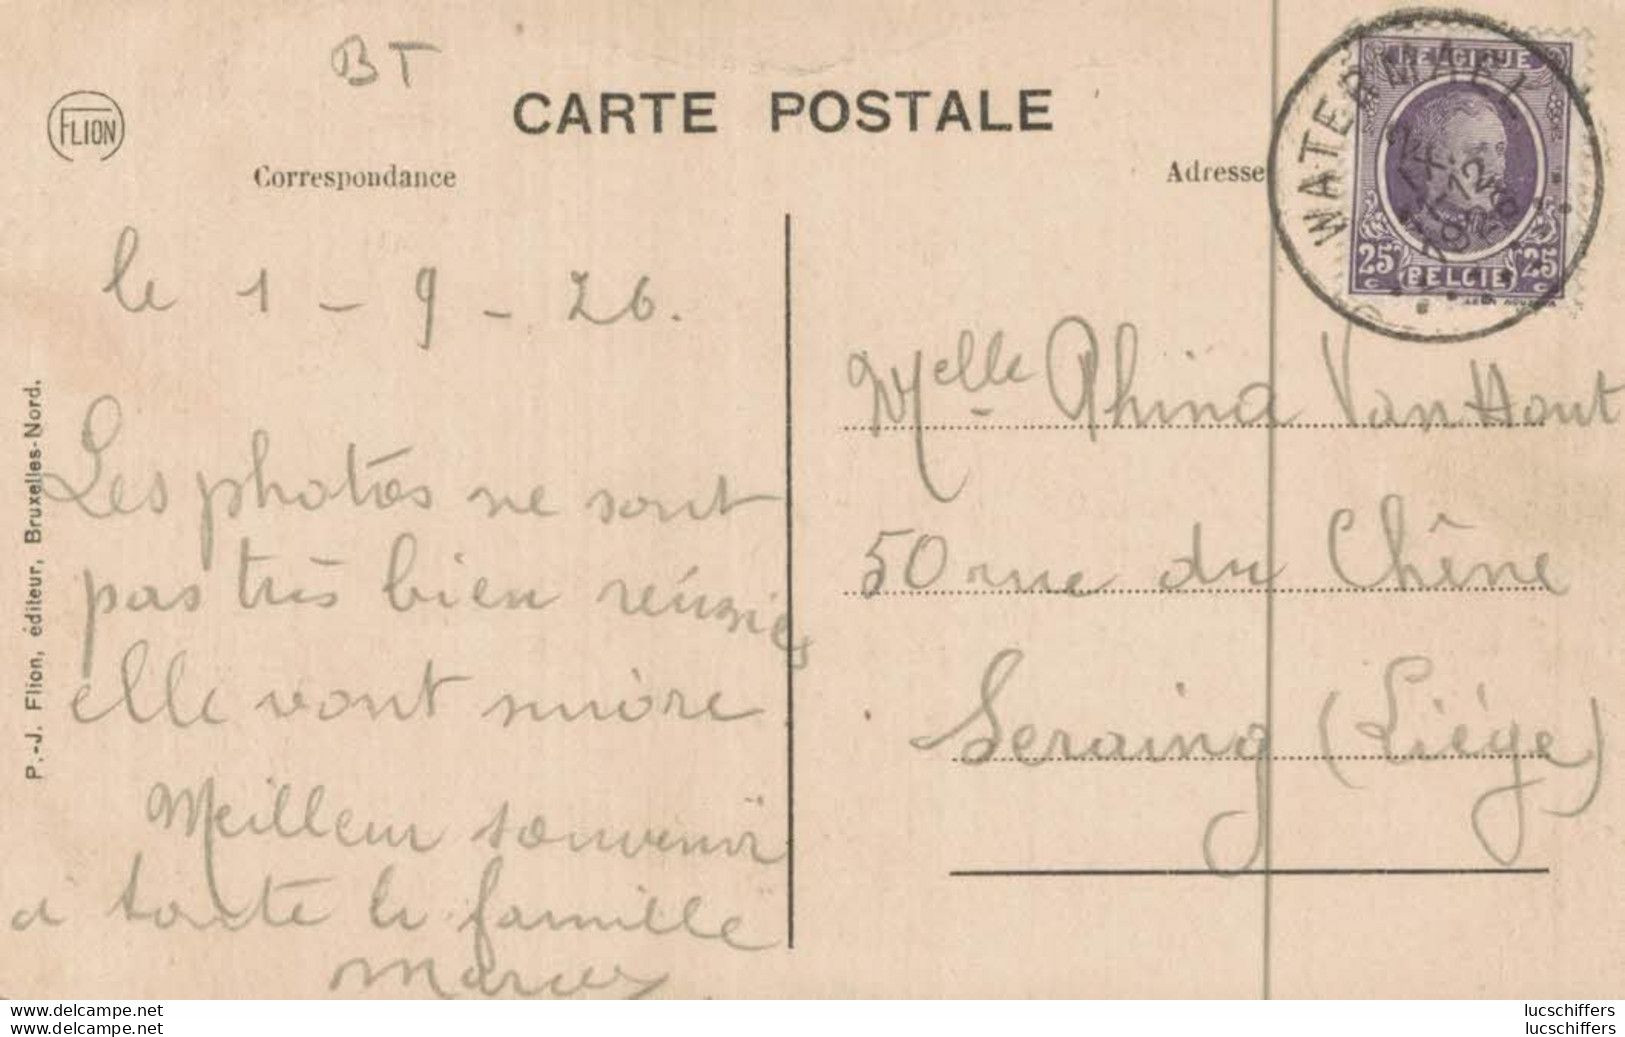 BT
CARTE POSTALE
FLION
Correspondance
Adresse
WATERMAEL
BELGIQUE
25 25
BELGIE
le 1 - 9 - 26.
Les photos ne sont
pas très bien réussies
elle vont suivre
Meilleur souvenir
à toute la famille
Marcel
Melle Phina Van Hout
50 rue du Chêne
Seraing (Liége)
P.-J. Flion, éditeur, Bruxelles-Nord.
www.delcampe.net
www.delcampe.net
lucschiffers
lucschiffers